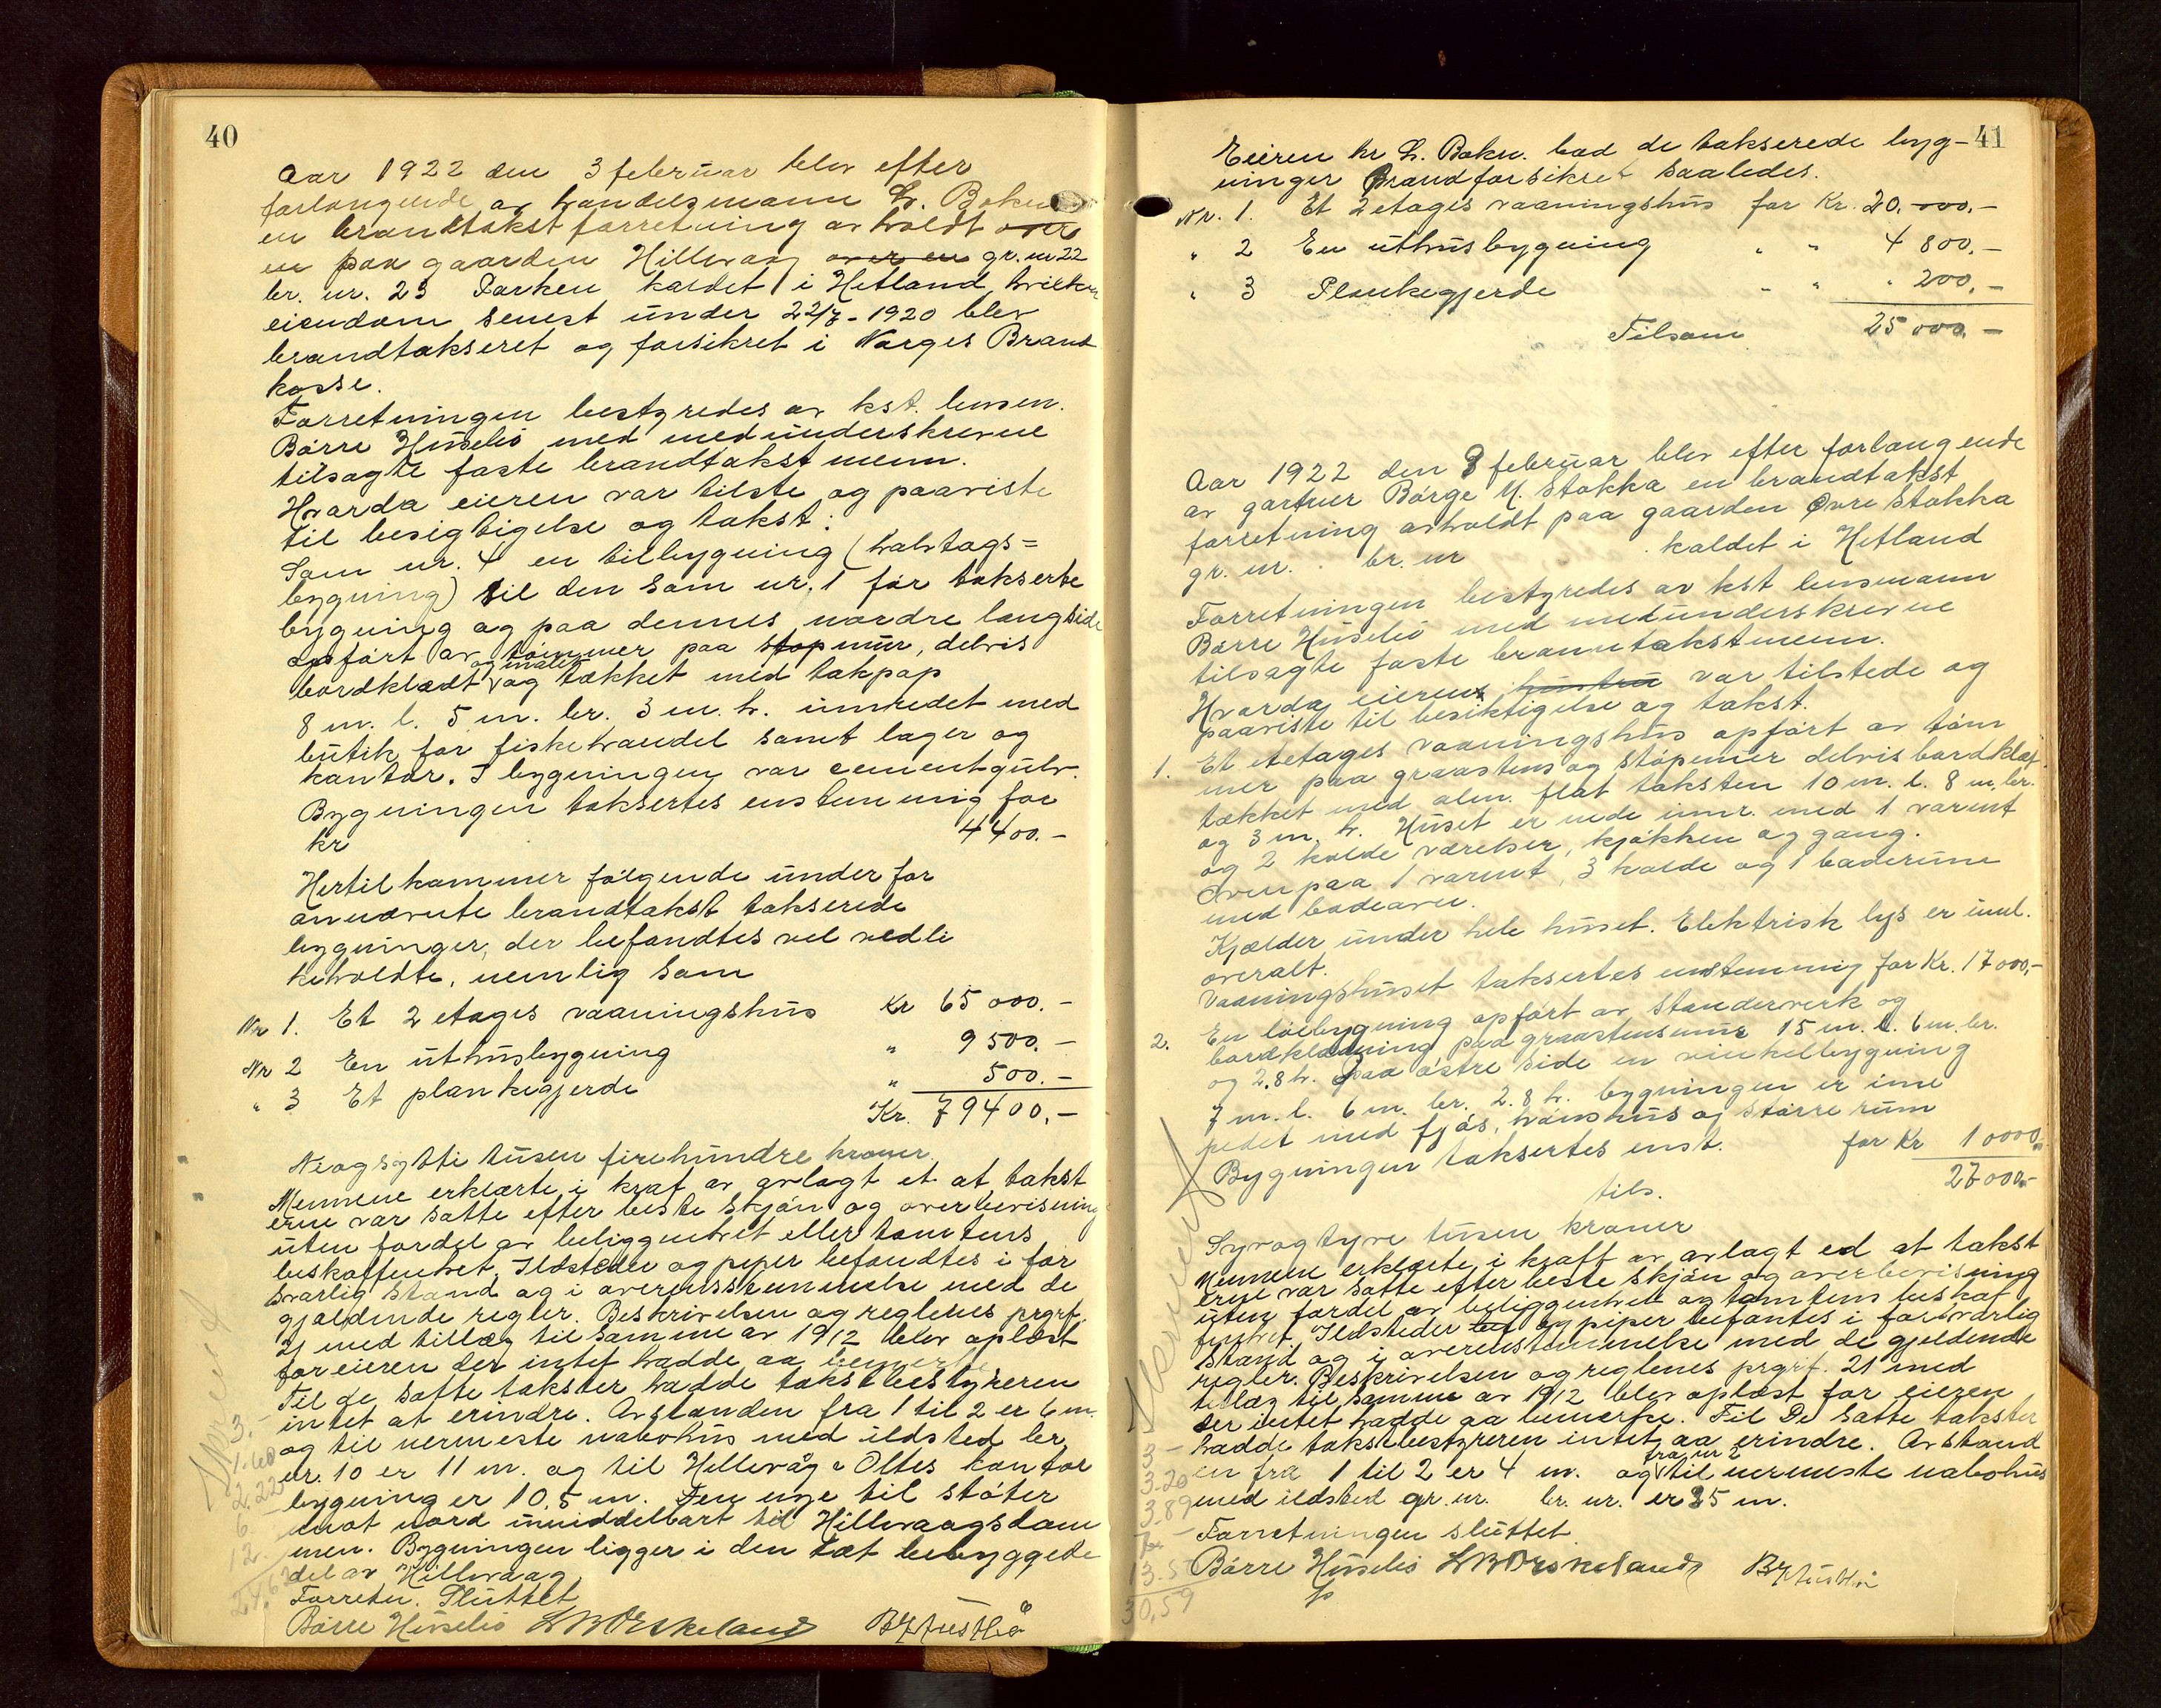 40
Aar 1922 den 3 februar blev efter
forlangende av handelsmann L. Bokn
en brandtakst forretning avholdt over
en paa gaarden Hillevaag over en gr. nr 22
br. nr. 23 Parken kaldet i Hetland, hvilken
eiendom senest under 22/7-1920 blev
brandtakseret og forsikret i Norges Brand
kasse.
Forretningen bestyredes av kst. lensm.
Børre Huselió med medunderskrevne
tilsagte faste brandtakstmenn.
Hvorda eieren var tilste og paaviste
til besigtigelse og takst:
Som nr. 4 en tilbygning (halvtags=
bygning) til den som nr. 1 før takserte
bygning og paa dennes nordre langside
opført av tømmer paa støpmur, delvis
bordklædt og malet og tækket med takpap
8 m. l. 5 m. br. 3 m. h. innredet med
butik for fiskehandel samt lager og
kantor. I bygningen var cementgulv.
Bygningen taksertes enstemmig for
kr 4400.-
Hertil kommer følgende under for
annævnte brandtakst takserede
bygninger, der befandtes vel vedli
keholdte, nemlig som
Nr 1. Et 2 etages vaaningshus Kr 65 000.-
Nr 2 En uthusbygning " 9 500.-
" 3 Et plankegjerde " 500.-
Kr. 79400,-
Niogsytti tusen firehundre kroner.
Mennene erklærte i kraf av avlagt et at takst
erne var satte efter beste skjøn og overbevisning
uten fordel av beliggenhet eller tomtens
beskaffenhet. Ildsteder og piper befandtes i for
svarlig stand og i overensstemmelse med de
gjældende regler. Beskrivelsen og reglenes prgrf.
21 med tillæg til samme av 1912 blev oplæst
for eieren der intet hadde aa bemerke.
Til de satte takster hadde takstbestyreren
intet at erindre. Avstanden fra 1 til 2 er 6 m.
og til nermeste nabohus med ildsted br
nr. 10 er 11 m. og til Hillevåg & Oltes kontor
bygning er 10,5 m. Den nye til støter
mot nord umiddelbart til Hillevaagsdam
men. Bygningen ligger i den tæt bebyggede
del av Hillevaag
Forretn. Sluttet
Børre Huselió
3.-
1.60
2.22
6.-
12.-
41
Eieren hr L. Bokn. bad de takserede byg-
ninger brandforsikret saaledes.
Nr. 1. Et 2 etages vaaningshus for Kr. 20.000.-
" 2 En uthusbygning " " 4 800.-
" 3 Plankegjerde " " " 200.-
Tilsam 25 000.-
Aar 1922 den 8 februar blev efter forlangende
av gartner Børge M. Stokka en brandtakst
forretning avholdt paa gaarden Øvre Stokka
gr. nr. br. nr kaldet i Hetland
Forretningen bestyredes av kst lensmann
Børre Huselió med medunderskrevne
tilsagte faste branntakstmenn.
Hvorda eieren hustru var tilstede og
paaviste til besiktigelse og takst.
1. Et etetages vaaningshus opført av tøm
mer paa graastens og støpemur delvis bordklæt
tækket med alm. flat taksten 10 m. l. 8 m. br.
og 3 m. h. Huset er nede innr. med 1 varmt
og 2 kolde værelser, kjøkken og gang.
Ovenpaa 1 varmt, 3 kolde og 1 baderum
med badeovn.
Kjælder under hele huset. Elektrisk lys er innl.
overalt.
Vaaningshuset taksertes enstemmig for Kr. 17000,-
2. En løebygning opført av standerverk og
bordklædning paa graastensmur 15 m. l. 6 m. br.
og 2,8 h. paa østre side en vinkelbygning
7 m. l. 6 m. br. 2.8 h. bygningen er inne
redet med fjøs, hønshus og større rum
Bygningen taksertes enst. for Kr 10000,-
tils. 27000.-
Syvogtyve tusen kroner
Mennene erklærte i kraft av avlagt ed at takst
erne var satte efter beste skjøn og overbevisning
uten fordel av beliggenhet og tomtens beskaf
fenhet. Ildsteder og piper befantes i forsvarlig
stand og i overenstemmelse med de gjeldende
regler. Beskrivelsen og reglenes prgrf. 21 med
tillæg til samme av 1912 blev oplæst for eieren
der intet hadde aa bemerke. Til De satte takster
hadde takstbestyreren intet aa erindre. Avstand
en fra 1 til 2 er 4 m. og fra nr 2 til nermeste nabohus
med ildsted gr. nr. br. nr. er 35 m.
Forretningen sluttet
Børre Huselió
3-
3.20
3.89
30,59